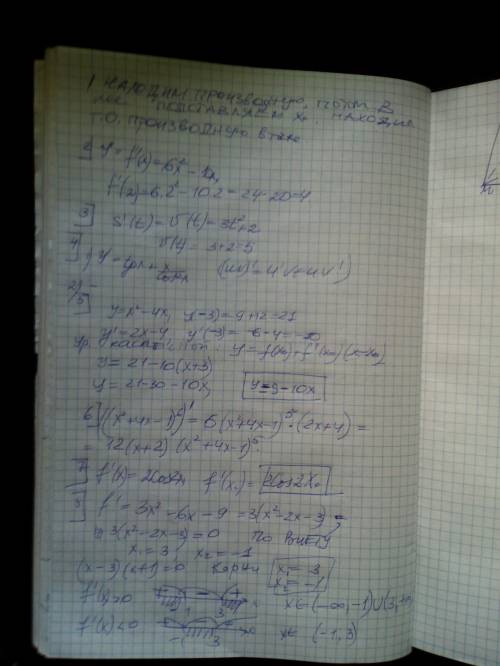 1 НАХОДИМ ПРОИЗВОДНУЮ, ПОТОМ В
НЕЕ ПОДСТАВЛЯЕМ X₀. НАХОДИМ
Т.О. ПРОИЗВОДНУЮ В
2] y = f'(x) = 6x² - 10x,
f'(2) = 6·2² - 10·2 = 24 - 20 = 4
3] S'(t) = V(t) = 3t² + 2
V(t) = 3+2 = 5
4] (uv)' = u'v + uv')
5 y = x² - 4x, y(-3) = 9 + 12 = 21
y' = 2x - 4 y'(-3) = -6 - 4 = -10
Ур. касат. y = f(x₀) + f'(x₀)(x-x₀)
y = 21 - 10(x+3)
y = 21 - 30 - 10x, y = -9 - 10x
6] ((x²+4x-1)⁶)' = 6(x²+4x-1)⁵·(2x+4) =
= 12(x+2)(x²+4x-1)⁵.
7] f'(x) = 2cos2x f'(x₀) = 2cos2x₀
8] f' = 3x² - 6x - 9 = 3(x²-2x-3) =
3(x²-2x-3) = 0 ПО ВИЕТУ
x₁ = 3 x₂ = -1
(x-3)(x+1) = 0 Корни x₁ = 3
x₂ = -1
f'(x) > 0 -1 3 x x∈(-∞,-1)∪(3,+∞)
f'(x) < 0 -1 3 x∈ (-1,3)